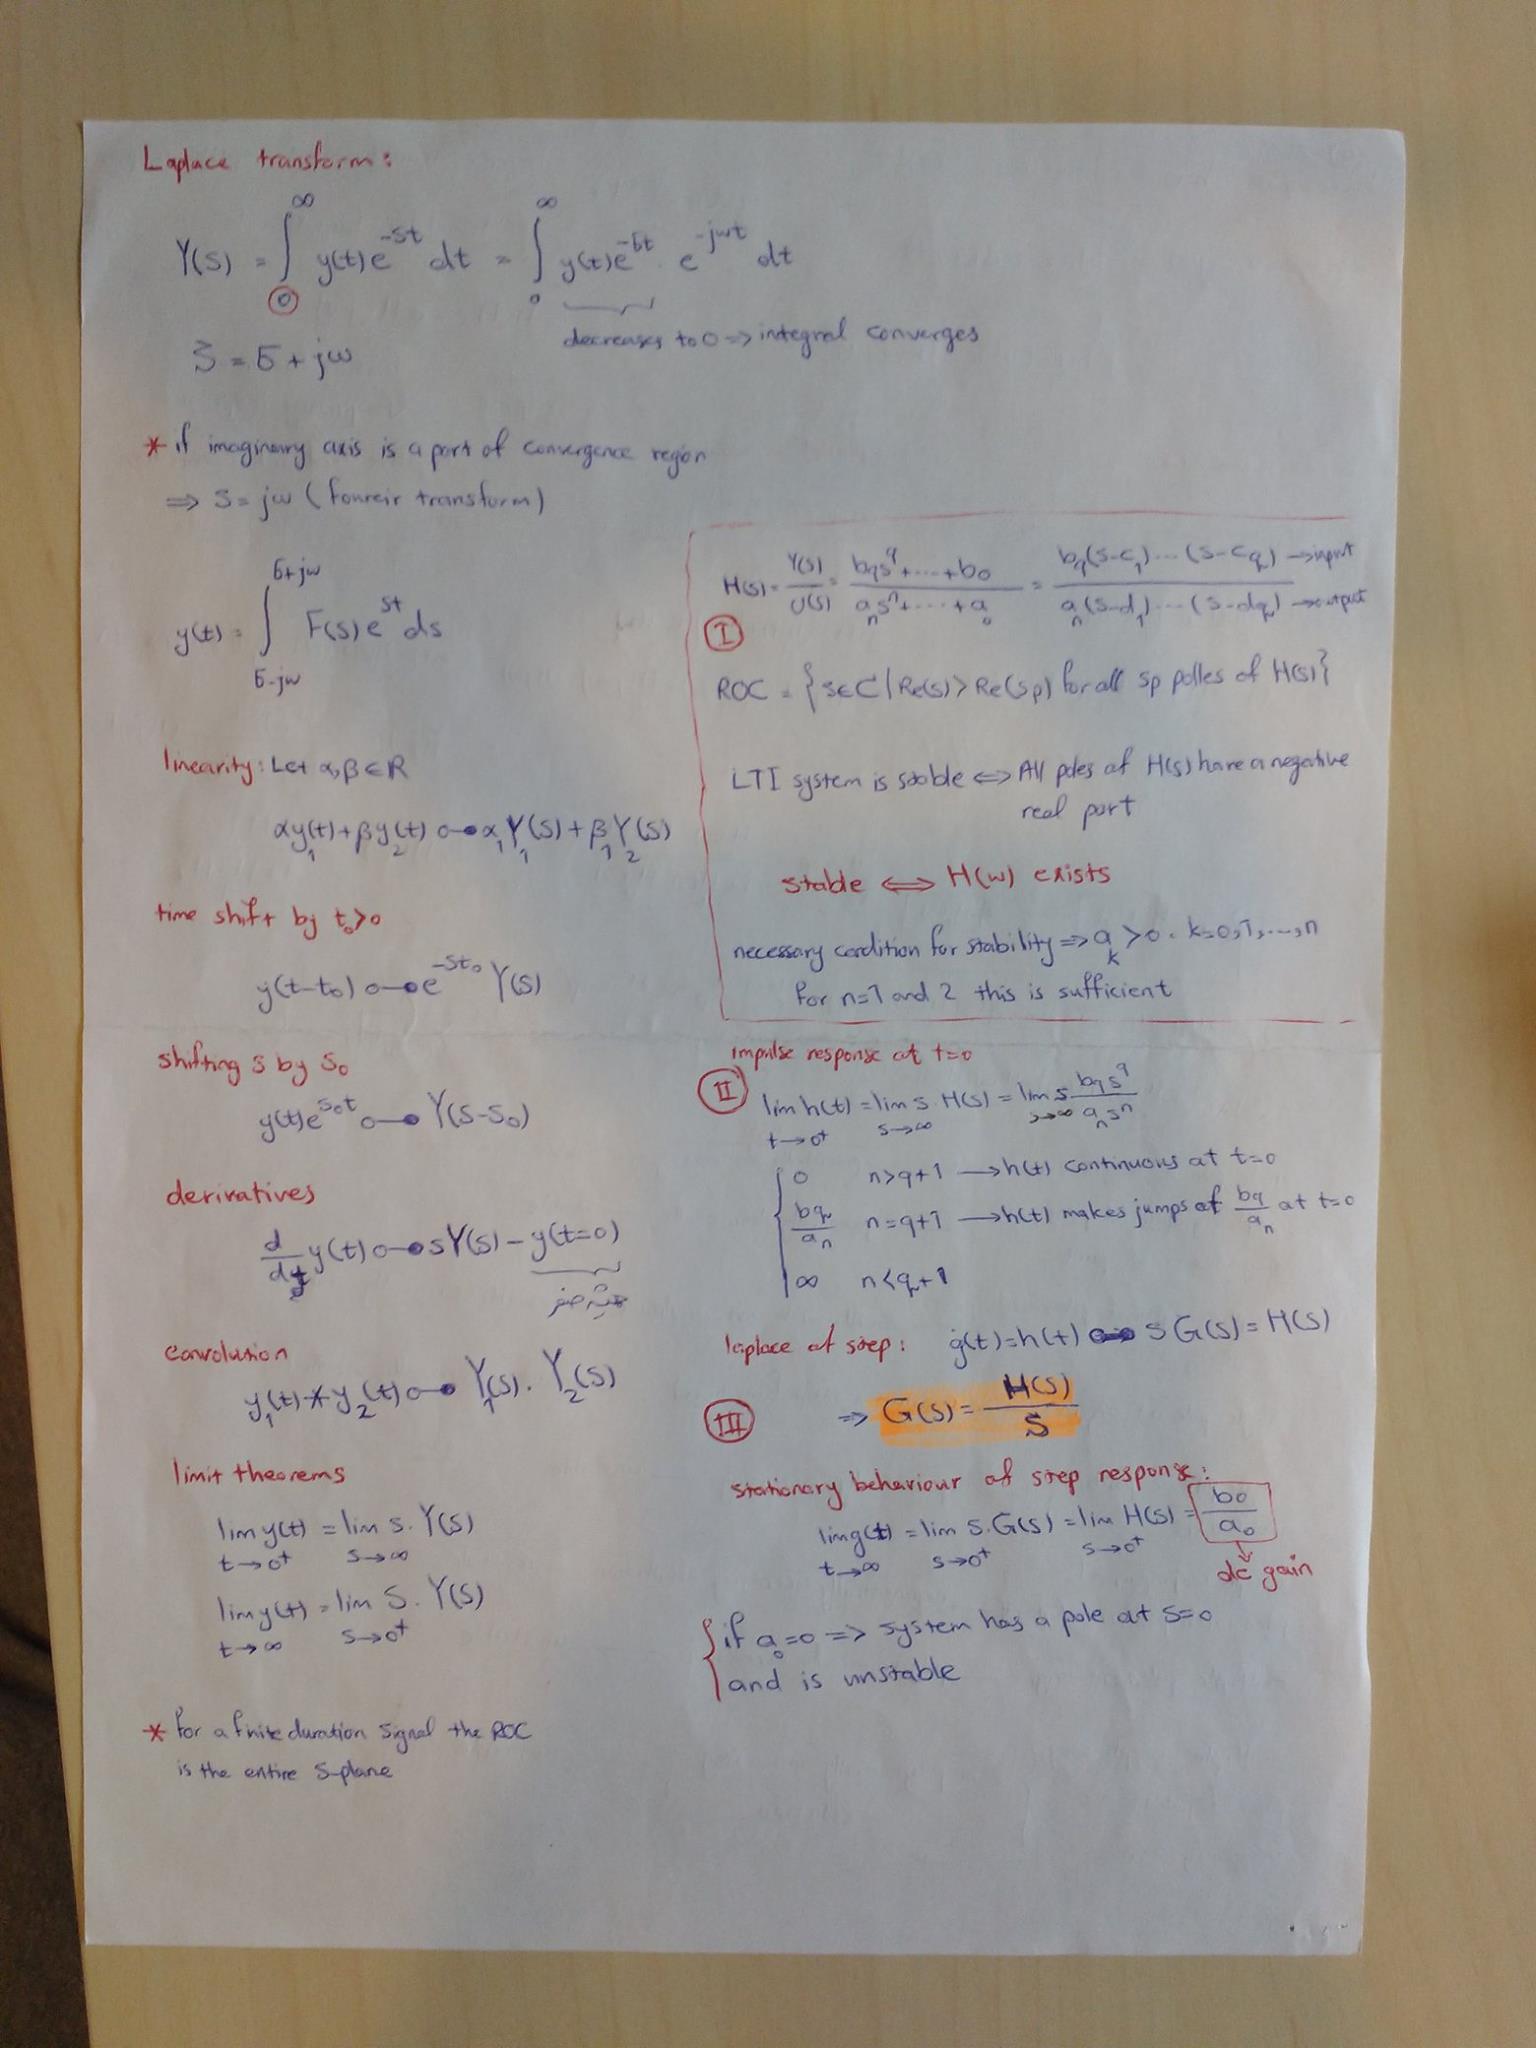 Laplace transform:
Y(s) = ∫₀^∞ y(t)e^{-st} dt = ∫₀^∞ y(t)e^{-σt} . e^{-jωt} dt
decreases to 0 => integral converges
s = σ + jω
* if imaginary axis is a part of convergence region
=> s = jω (foureir transform)
y(t) = ∫_{σ-jω}^{σ+jω} F(s) e^{st} ds
linearity: Let α,β ∈ R
αy₁(t)+βy₂(t) o–• α₁Y₁(s) + β₁Y₂(s)
time shift by t₀>0
y(t-t₀) o–• e^{-st₀} Y(s)
shifting s by s₀
y(t)e^{s₀t} o–• Y(s-s₀)
derivatives
d/dt y(t) o–• sY(s) – y(t=0)
convolution
y₁(t)*y₂(t) o–• Y₁(s) . Y₂(s)
limit theorems
lim y(t) = lim s . Y(s)
t→0⁺ s→∞
lim y(t) = lim s . Y(s)
t→∞ s→0⁺
* for a finite duration signal the ROC
is the entire s-plane
H(s) = Y(s)/U(s) = (b_q s^q + ... + b₀)/(a_n s^n + ... + a₀) = (b_q(s-c₁)...(s-c_q))/(a_n(s-d₁)...(s-d_q)) → input → output
I
ROC = {s∈C | Re(s) > Re(sp) for all sp polles of H(s)}
LTI system is stable <=> All poles of H(s) have a negative
real part
stable <=> H(w) exists
necessary condition for stability => a_k > 0 . k=0,1,...,n
for n=1 and 2 this is sufficient
impulse response at t=0
II
lim h(t) = lim s . H(s) = lim s (b_q s^q)/(a_n s^n)
t→0⁺ s→∞ s→∞
{ 0 n>q+1 → h(t) continuous at t=0
b_q/a_n n=q+1 → h(t) makes jumps of b_q/a_n at t=0
∞ n<q+1
laplace of step: ġ(t)=h(t) o–• s G(s) = H(s)
III
=> G(s) = H(s)/s
stationary behaviour of step response:
lim g(t) = lim s.G(s) = lim H(s) = b₀/a₀
t→∞ s→0⁺ s→0⁺
dc gain
{ if a₀=0 => system has a pole at s=0
and is unstable